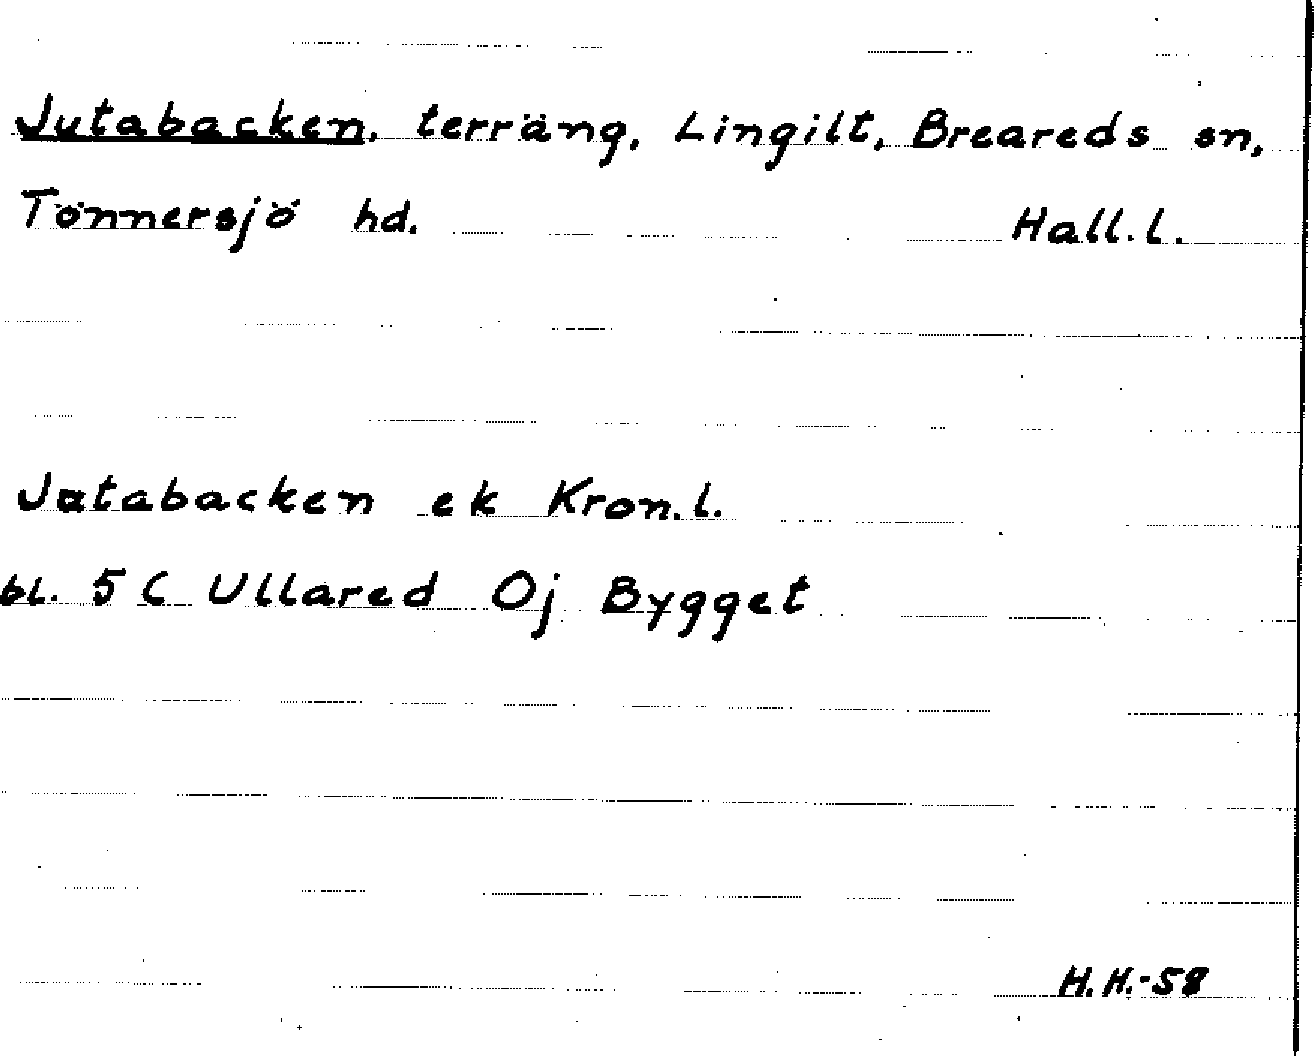 Jutabacken, terräng, Lingilt, Breareds sn,
Tönnersjö hd. Hall.l.
Jutabacken ek Kron.l.
bl. 5 C Ullared Oj Bygget
H.H.-58